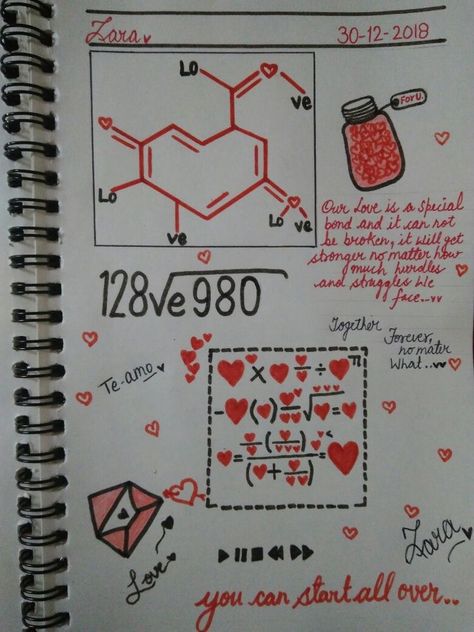 Zara
30-12-2018
Lo
ve
For U.
Lo
Lo
ve
ve
Our Love is a special
bond and it can not
be broken, it will get
stronger no matter how
much hurdles
and struggles We
face...
128√e980
Together
Forever,
no mater
What...
Te-amo
Love
Zara
you can start all over..